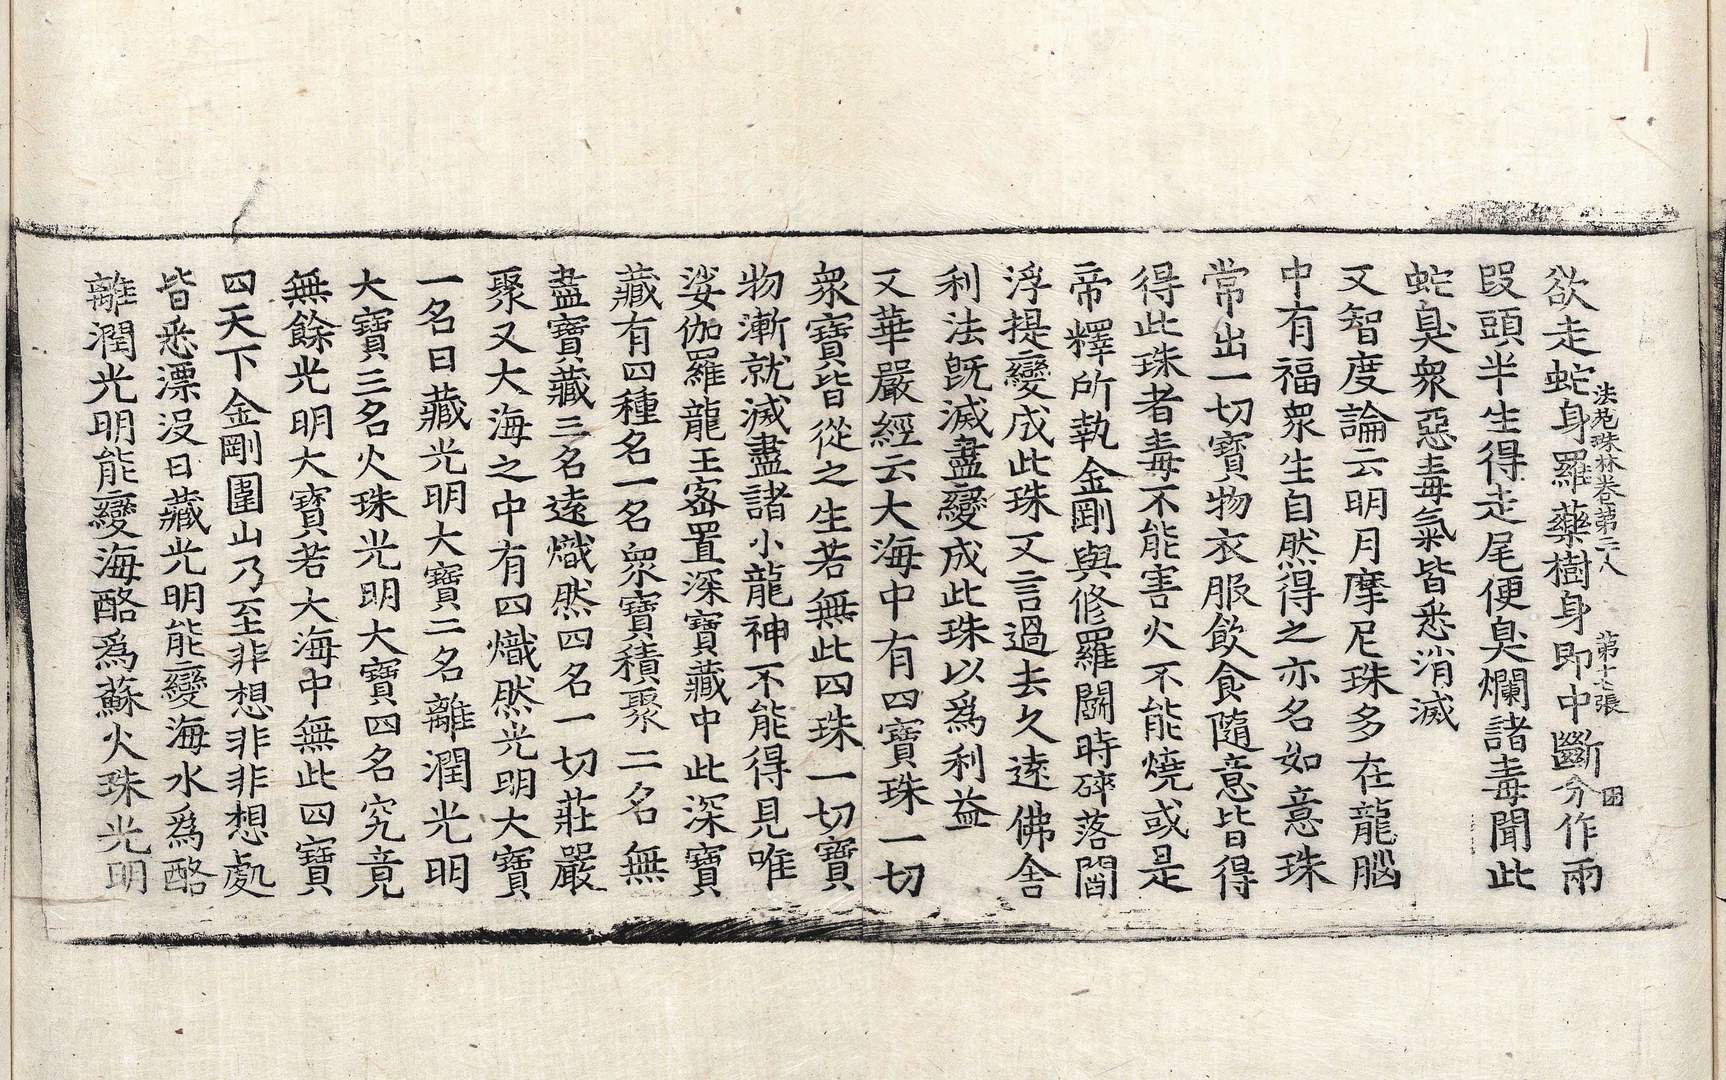 法苑珠林卷第二八 第十七張 困
欲走蛇身羅藥樹身即中斷分作兩
段頭半生得走尾便臭爛諸毒聞此
蛇臭衆惡毒氣皆悉消滅
又智度論云明月摩尼珠多在龍腦
中有福衆生自然得之亦名如意珠
常出一切寶物衣服飲食隨意皆得
得此珠者毒不能害火不能燒或是
帝釋所執金剛與修羅鬪時碎落閻
浮提變成此珠又言過去久遠佛舍
利法旣滅盡變成此珠以爲利益
又華嚴經云大海中有四寶珠一切
衆寶皆從之生若無此四珠一切寶
物漸就滅盡諸小龍神不能得見唯
娑伽羅龍王密置深寶藏中此深寶
藏有四種名一名衆寶積聚二名無
盡寶藏三名遠熾然四名一切莊嚴
聚又大海之中有四熾然光明大寶
一名日藏光明大寶二名離潤光明
大寶三名火珠光明大寶四名究竟
無餘光明大寶若大海中無此四寶
四天下金剛圍山乃至非想非非想處
皆悉漂沒日藏光明能變海水爲酪
離潤光明能變海酪爲蘇火珠光明